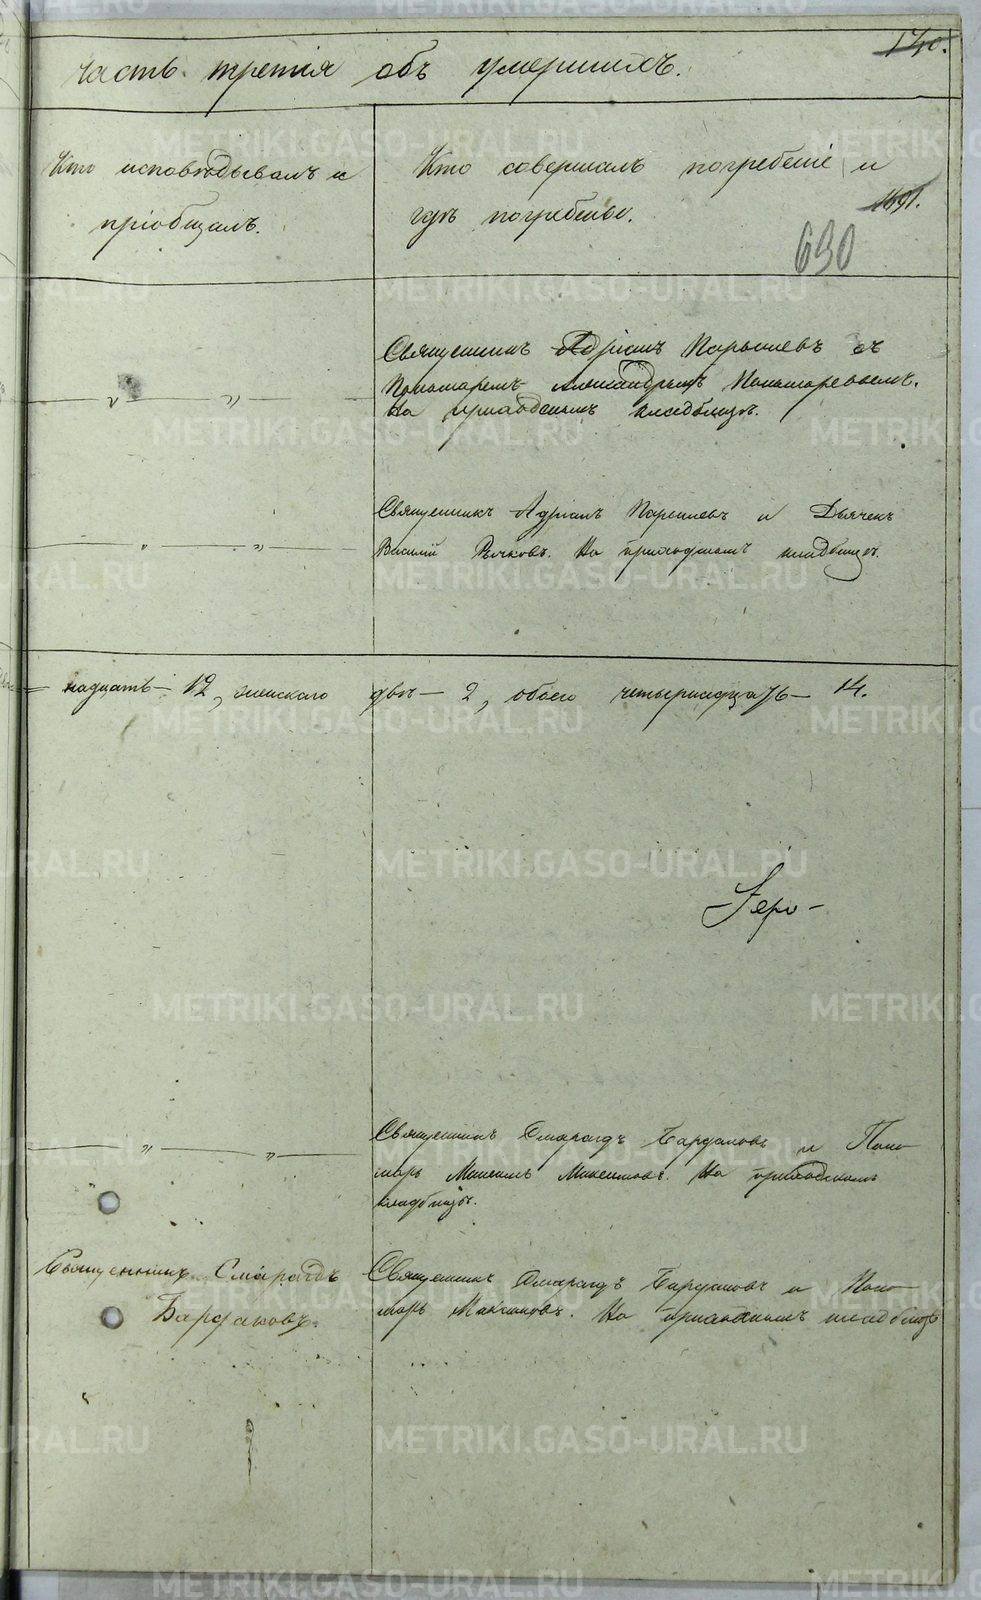 140.
часть третія объ умершихъ.
Кто исповѣдывалъ и
пріобщалъ.
Кто совершалъ погребеніе и
гдѣ погребены.
1691.
690
Священникъ Адріанъ съ
Пономаремъ Александромъ Пономаревымъ.
На приходскомъ кладбищѣ.
Священникъ Адріанъ и Дьячекъ
Василій Рычковъ. На приходскомъ кладбищѣ.
надцать – 12, женскаго двѣ – 2, обоего четырнадцать – 14.
Іеро-
Священникъ Смарагдъ Бардаковъ и Поно
марь Максимовъ. На приходскомъ
кладбищѣ.
Священникъ Смарагдъ
Бардаковъ.
Священникъ Смарагдъ Бардаковъ и Поно
марь Максимовъ. На приходскомъ кладбищѣ
METRIKI.GASO-URAL.RU